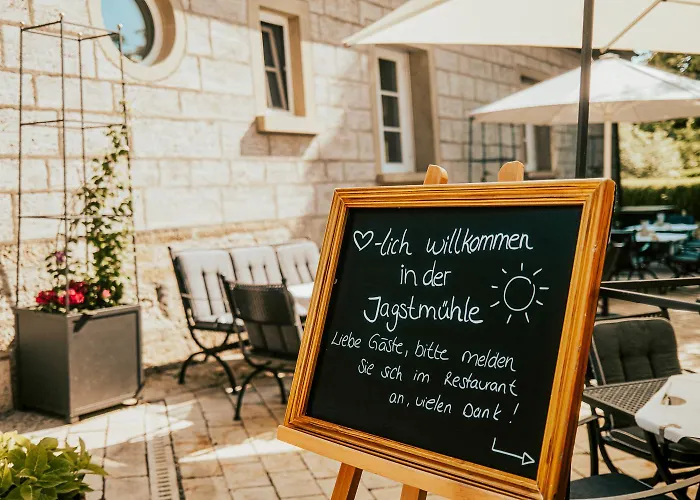 ♡-lich willkommen
in der
Jagstmühle
Liebe Gäste, bitte melden
Sie sich im Restaurant
an, vielen Dank!